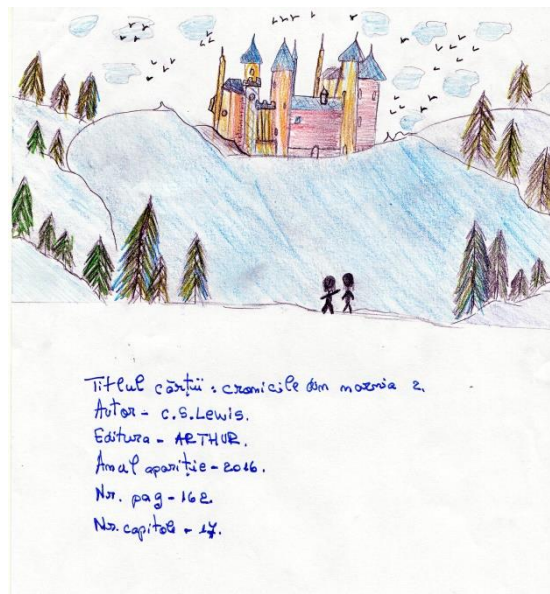 Titlul cărții: cronicile din narnia 2.
Autor - C.S.Lewis.
Editura - ARTHUR.
Anul apariție - 2016.
Nr. pag - 162
Nr. capitole - 17.